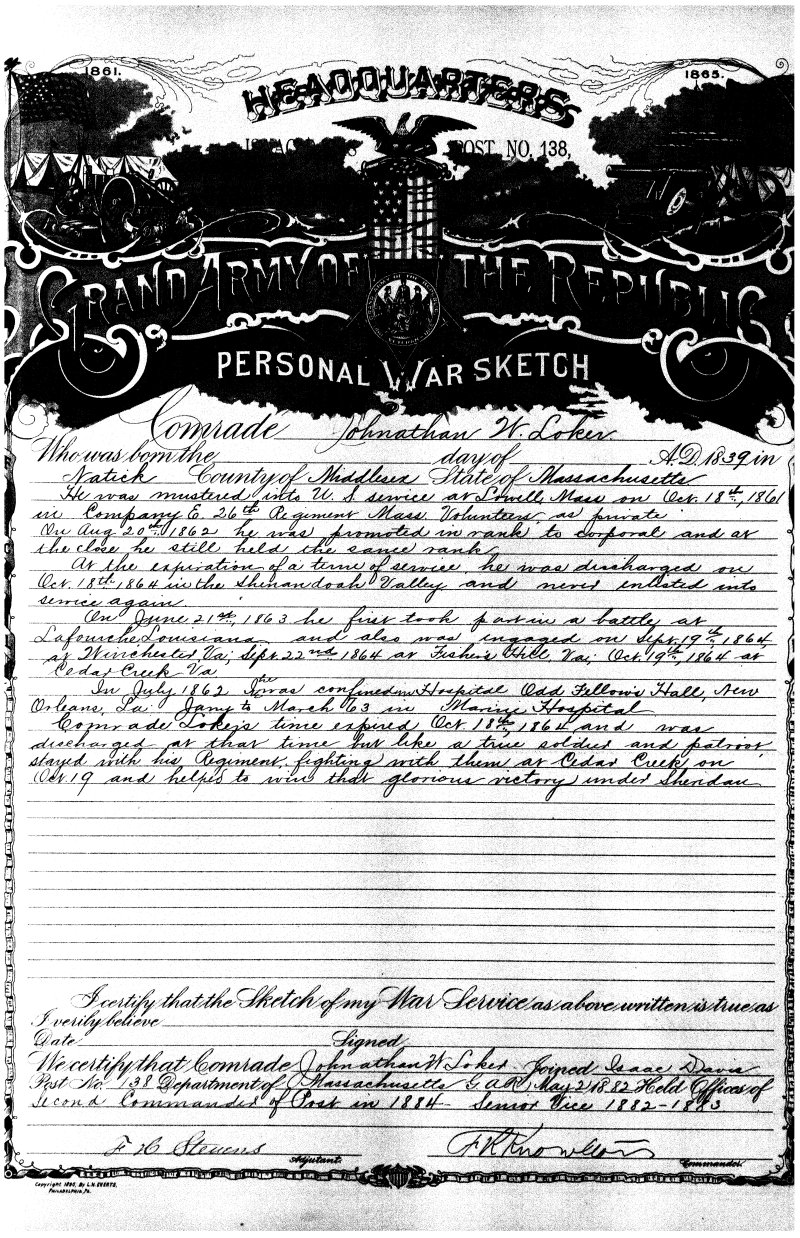 1861.
1865.
HEADQUARTERS
POST NO. 138,
GRAND ARMY OF THE REPUBLIC
PERSONAL WAR SKETCH
Comrade Johnathan W. Loker
Who was born the day of A.D. 1839 in
Natick County of Middlesex State of Massachusetts
He was mustered into U. S service at Lowell, Mass on Oct. 18th, 1861
in Company E. 26th Regiment Mass, Volunteers as private
On Aug 20th 1862 he was promoted in rank to corporal and at
the close he still held the same rank
At the expiration of a time of service, he was discharged on
Oct. 18th 1864 in the Shenandoah Valley and never enlisted into
service again.
On June 21st, 1863 he first took part in a battle at
Lafourche Louisiana and also was engaged on Sept. 19th 1864,
at Winchester Va; Sept. 22nd 1864 at Fisher's Hill, Va; Oct. 19th, 1864 at
Cedar Creek Va
In July 1862 he was confined in Hospital Odd Fellows Hall, New
Orleans, La. Jany to March 63 in Marine Hospital
Comrade Loker's time expired Oct. 18th, 1864 and was
discharged at that time but like a true soldier and patriot,
stayed with his Regiment, fighting with them at Cedar Creek on
Oct. 19 and helped to win that glorious victory under Sheridan
I certify that the Sketch of my War Service as above written is true as
I verily believe
Date Signed
We certify that Comrade Johnathan W Loker Joined Isaac Davis
Post No. 138 Department of Massachusetts G.A.R. May 2 1882 Held Offices of
Second Commander of Post in 1884 - Senior Vice 1882-1883
F H Stevens
F R Knowlton
Adjutant.
Commander.
Copyright 1890, By L.H. Everts,
Philadelphia, Pa.